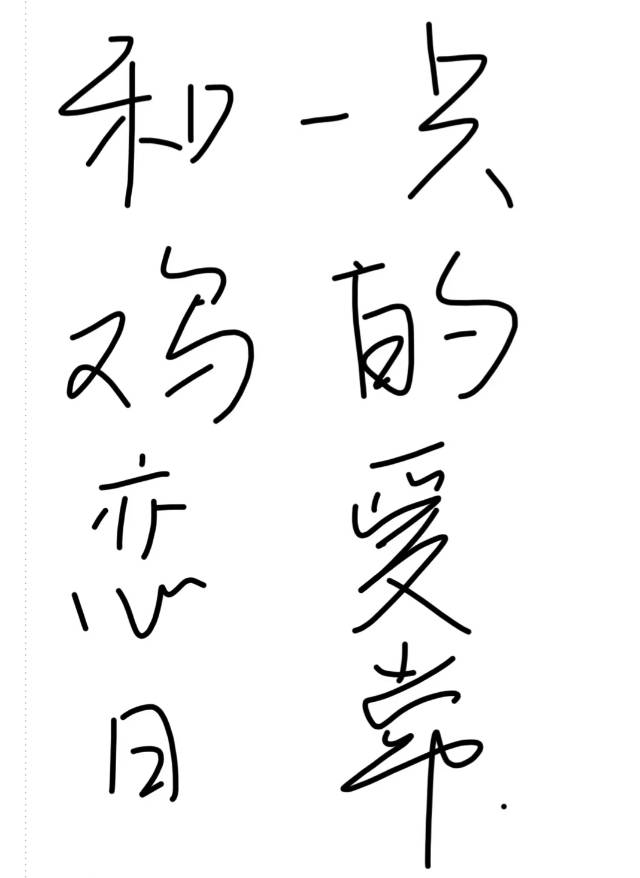 和一只
鸡的
恋爱
日常.